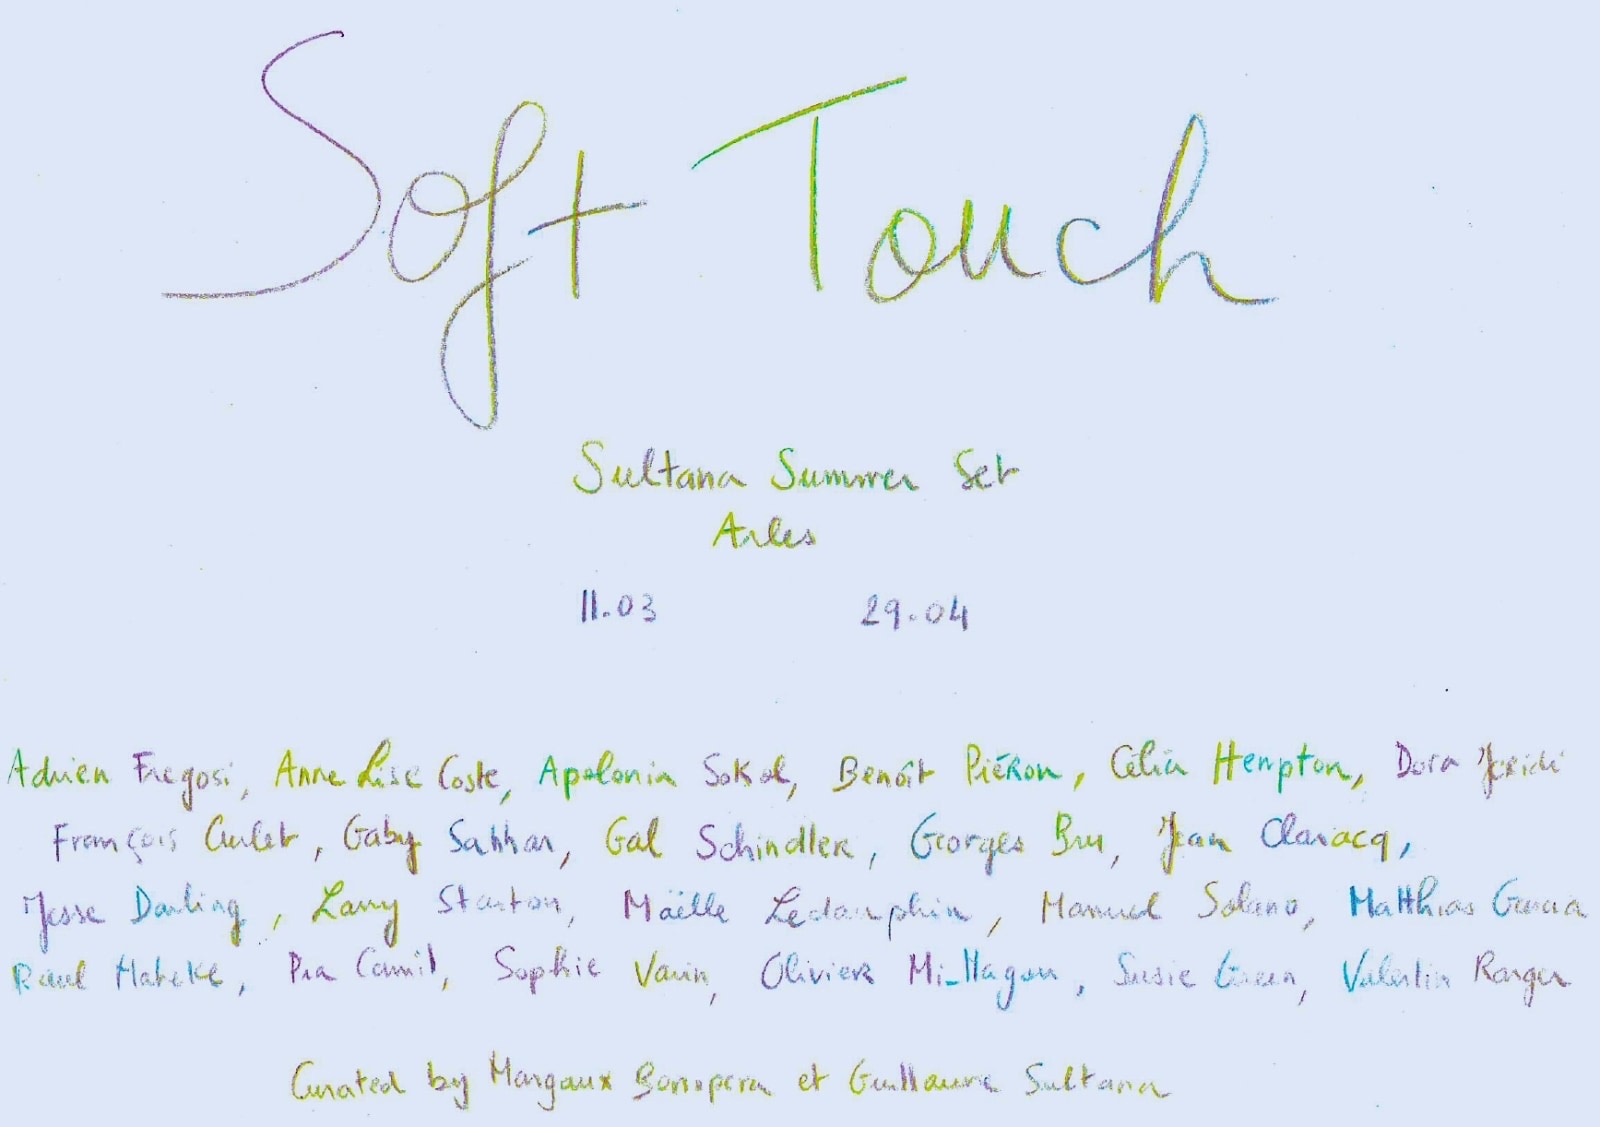 Soft Touch
Sultana Summer Set
Arles
11.03 29.04
Adrien Fregosi, Anne Lise Coste, Apolonia Sokol, Benoît Piéron, Célia Hempton, Dora Jeridi
François Curlet, Gaby Sahhar, Gal Schindler, Georges Bru, Jean Claracq,
Jesse Darling, Larry Stanton, Maëlle Ledauphin, Manuel Solano, Matthias Garcia
Paul Maheke, Pia Camil, Sophie Varin, Olivier Millagou, Susie Green, Valentin Ranger
Curated by Margaux Bonopera et Guillaume Sultana